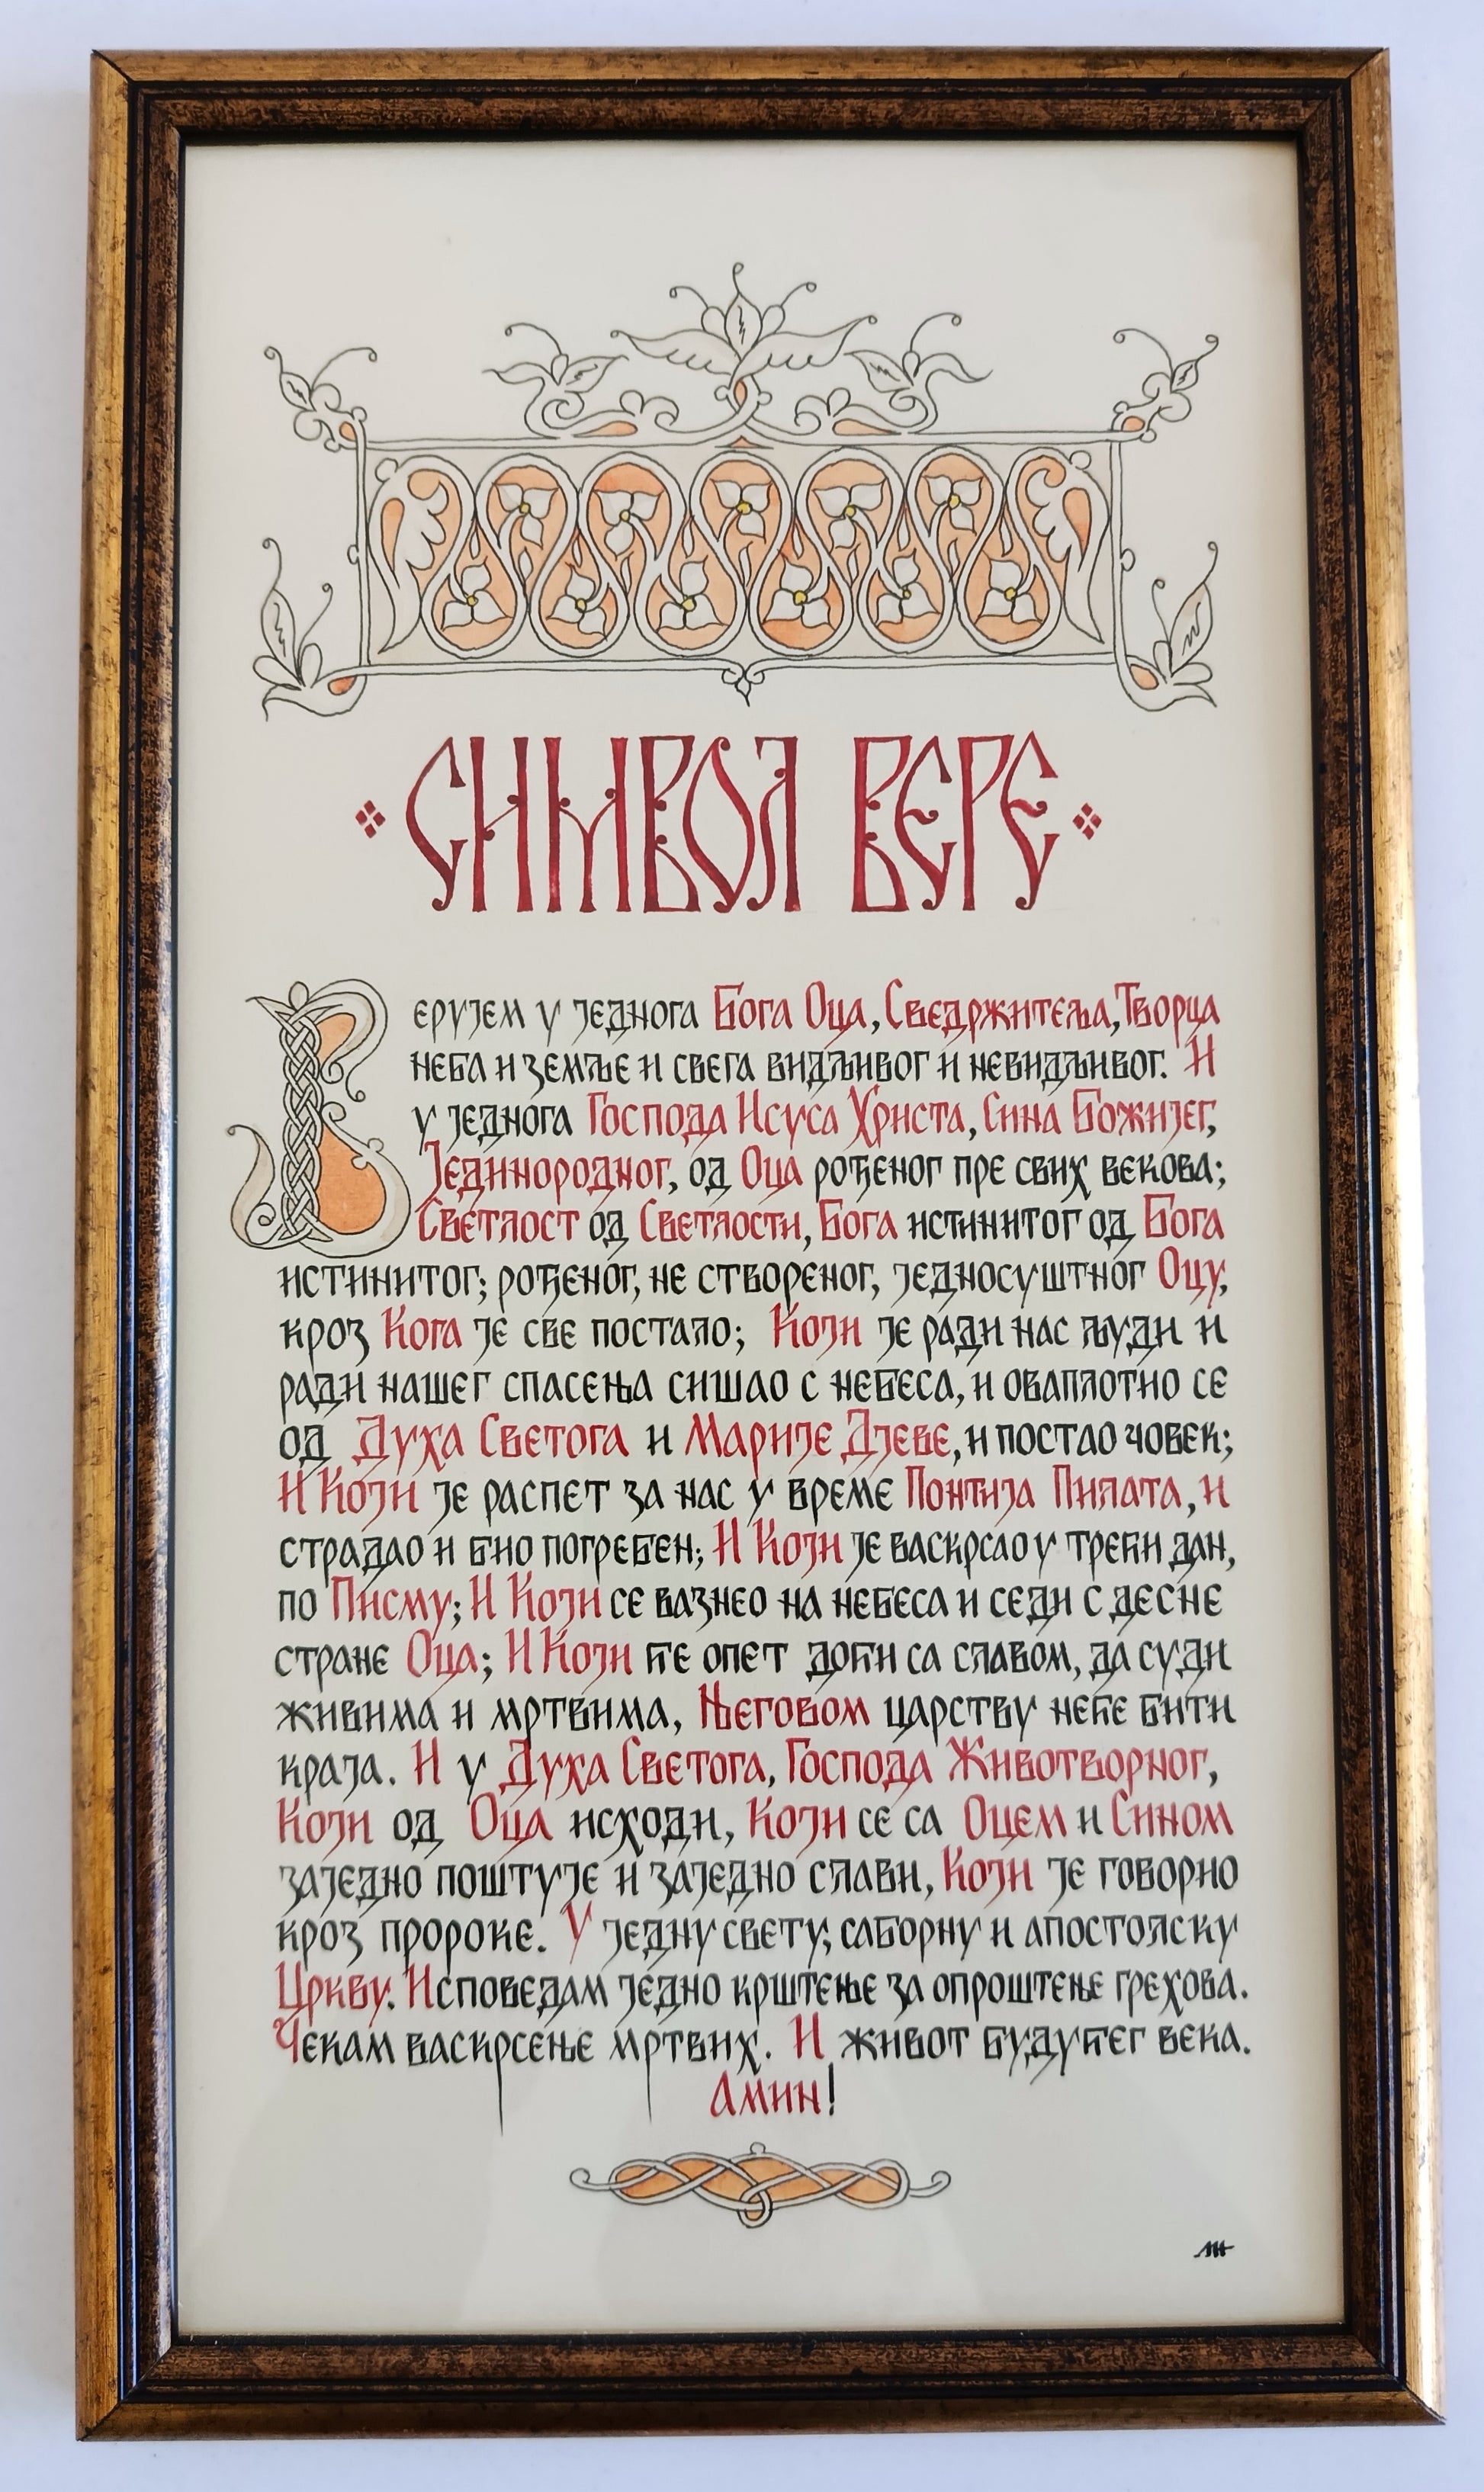 СИМВОЛ ВЕРЕ
Верујем у једнога Бога Оца, Сведржитеља, Творца
неба и земље и свега видљивог и невидљивог. И
у једнога Господа Исуса Христа, Сина Божијег,
Јединородног, од Оца рођеног пре свих векова;
Светлост од Светлости, Бога истинитог од Бога
истинитог; рођеног, не створеног, једносуштног Оцу,
кроз Кога је све постало; Који је ради нас људи и
ради нашег спасења сишао с небеса, и оваплотио се
од Духа Светога и Марије Дјеве, и постао човек;
И Који је распет за нас у време Понтија Пилата, и
страдао и био погребен; И Који је васкрсао у трећи дан,
по Писму; И Који се вазнео на небеса и седи с десне
стране Оца; И Који ће опет доћи са славом, да суди
живима и мртвима, Његовом царству неће бити
краја. И у Духа Светога, Господа Животворног,
Који од Оца исходи, Који се са Оцем и Сином
заједно поштује и заједно слави, Који је говорио
кроз пророке. У једну свету, саборну и апостолску
Цркву. Исповедам једно крштење за опроштење грехова.
Чекам васкрсење мртвих. И живот будућег века.
Амин!